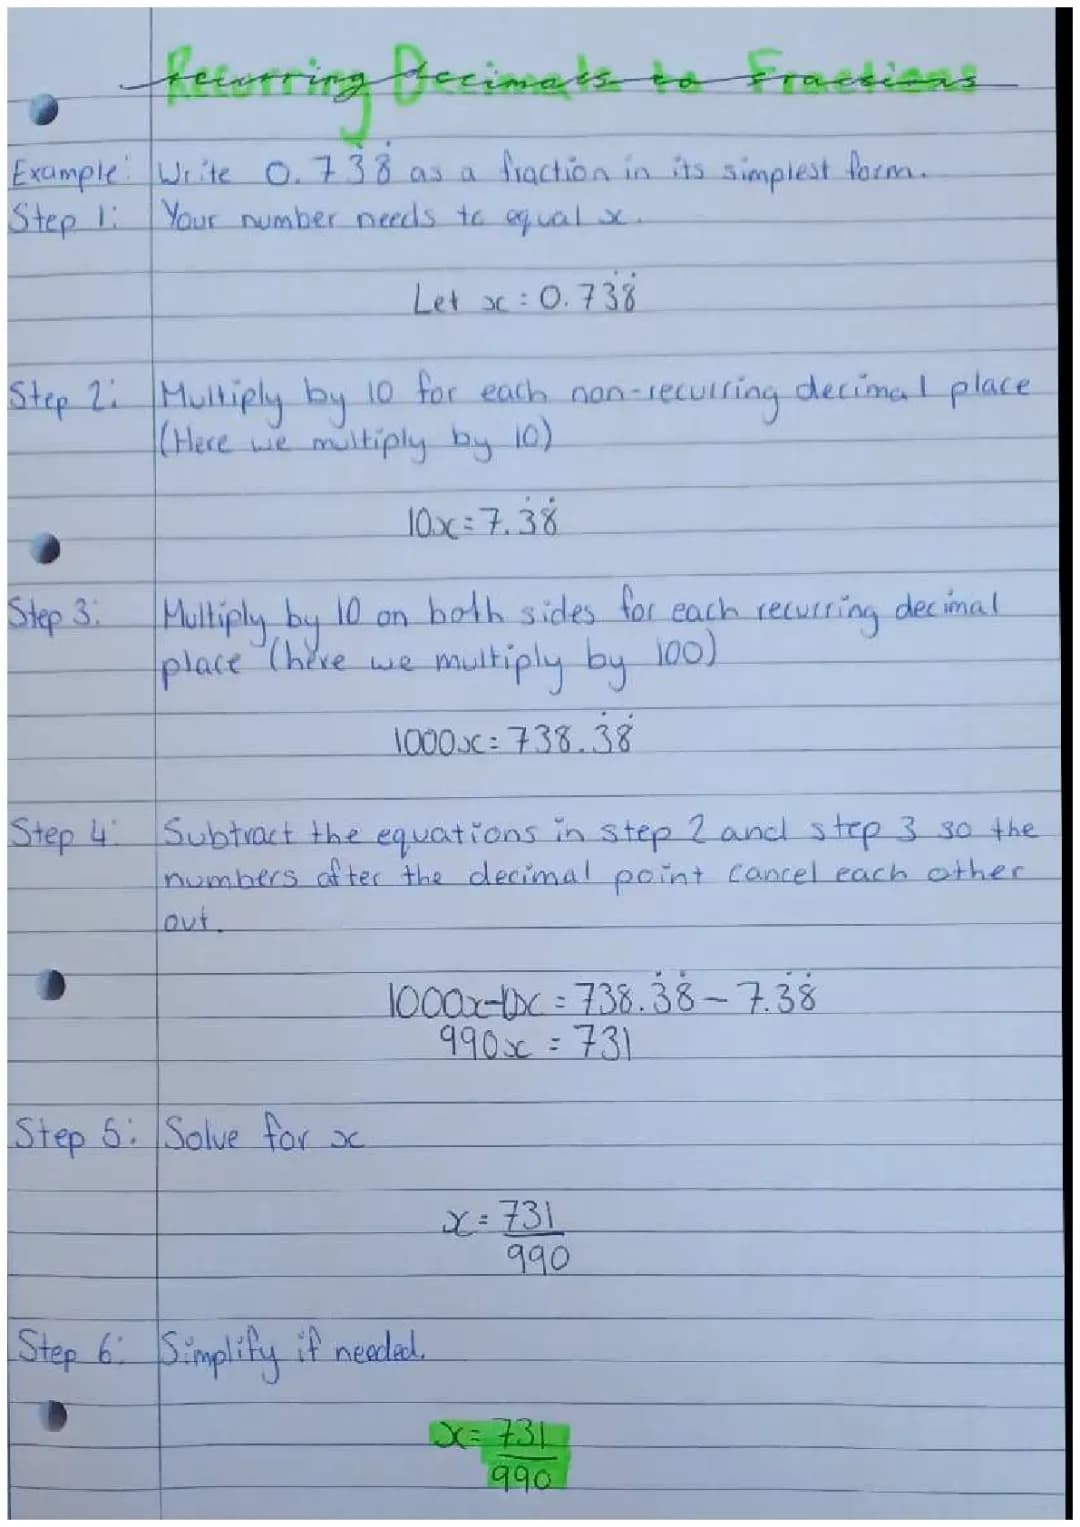 Recurring Decimals to Fractions
Example: Write 0.73̇8̇ as a fraction in its simplest form.
Step 1: Your number needs to equal x.
Let x = 0.73̇8̇
Step 2: Multiply by 10 for each non-recurring decimal place
(Here we multiply by 10)
10x = 7.3̇8̇
Step 3: Multiply by 10 on both sides for each recurring decimal
place (here we multiply by 100)
1000x = 738.3̇8̇
Step 4: Subtract the equations in step 2 and step 3 so the
numbers after the decimal point cancel each other
out.
1000x-10x = 738.3̇8̇ - 7.3̇8̇
990x = 731
Step 5: Solve for x
x = 731
990
Step 6: Simplify if needed.
x = 731
990